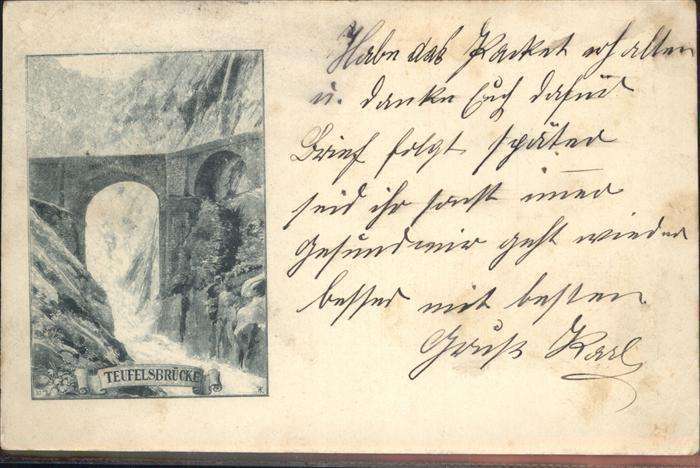 Habe das Packet erhalten
u. danke Euch dafür
Brief folgt später
seid ihr sonst immer
Gesund mir geht wieder
besser mit besten
Gruß Karl
TEUFELSBRÜCKE